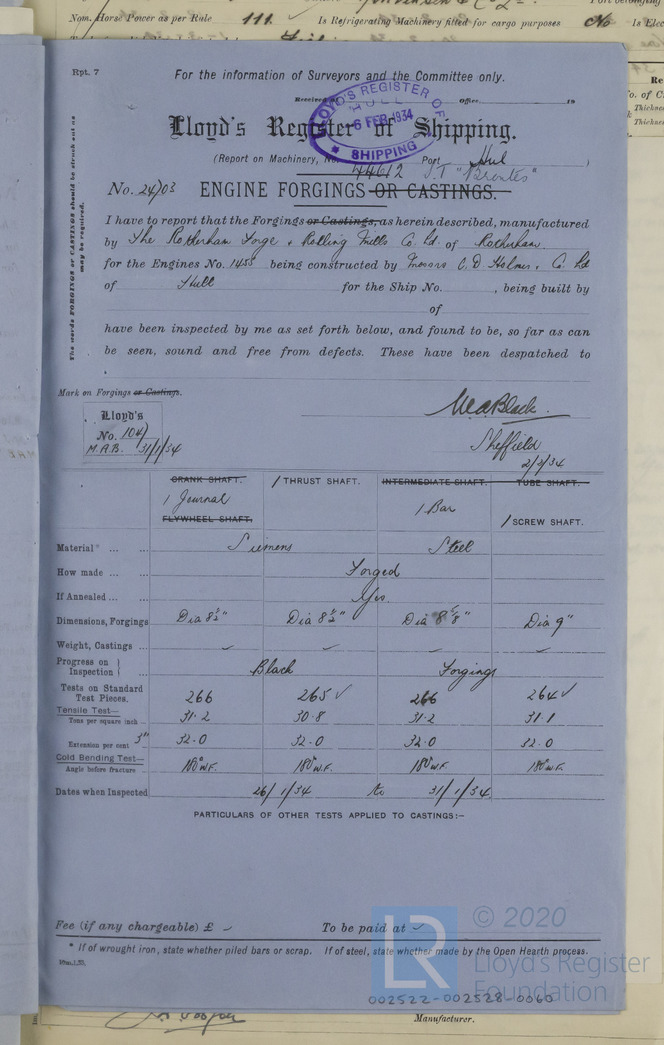 Nom. Horse Power as per Rule 111 Is Refrigerating Machinery fitted for cargo purposes No Is Elec
Rpt. 7
For the information of Surveyors and the Committee only.
Received Office 19
LLOYD'S REGISTER OF
HULL
6 FEB 1934
SHIPPING
Lloyd's Register of Shipping.
(Report on Machinery, No. 44612 Port Hul )
S.T "Brontes"
No. 24703 ENGINE FORGINGS OR CASTINGS.
The words FORGINGS or CASTINGS should be struck out as
may be required.
I have to report that the Forgings or Castings, as herein described, manufactured
by The Rotherham Forge & Rolling Mills Co. Ld. of Rotherham
for the Engines No. 1458 being constructed by Messrs C. D Holmes & Co. Ld
of Hull for the Ship No. , being built by
of
have been inspected by me as set forth below, and found to be, so far as can
be seen, sound and free from defects. These have been despatched to
Mark on Forgings or Castings.
Lloyd's
No. 1047
M.A.B. 31/1/34
M A Black.
Sheffield
2/2/34
CRANK SHAFT. 1 THRUST SHAFT. INTERMEDIATE SHAFT. TUBE SHAFT.
1 Journal 1 Bar
FLYWHEEL SHAFT. 1 SCREW SHAFT.
Material* ... ... Siemens Steel
How made ... ... Forged
If Annealed ... ... Yes.
Dimensions, Forgings Dia 8½" Dia 8½" Dia 8⅝" Dia 9"
Weight, Castings ...
Progress on Inspection ... Black Forgings
Tests on Standard Test Pieces. 266 265 ✓ 266 264 ✓
Tensile Test—
Tons per square inch 31.2 30.8 31.2 31.1
Extension per cent 3" 32.0 32.0 32.0 32.0
Cold Bending Test—
Angle before fracture 180° W.F. 180° W.F. 180° W.F. 180° W.F.
Dates when Inspected 26/1/34 to 31/1/34
PARTICULARS OF OTHER TESTS APPLIED TO CASTINGS:-
Fee (if any chargeable) £ To be paid at
* If of wrought iron, state whether piled bars or scrap. If of steel, state whether made by the Open Hearth process.
© 2020
LR
Lloyd's Register
Foundation
002522-002528-0060
Manufacturer.